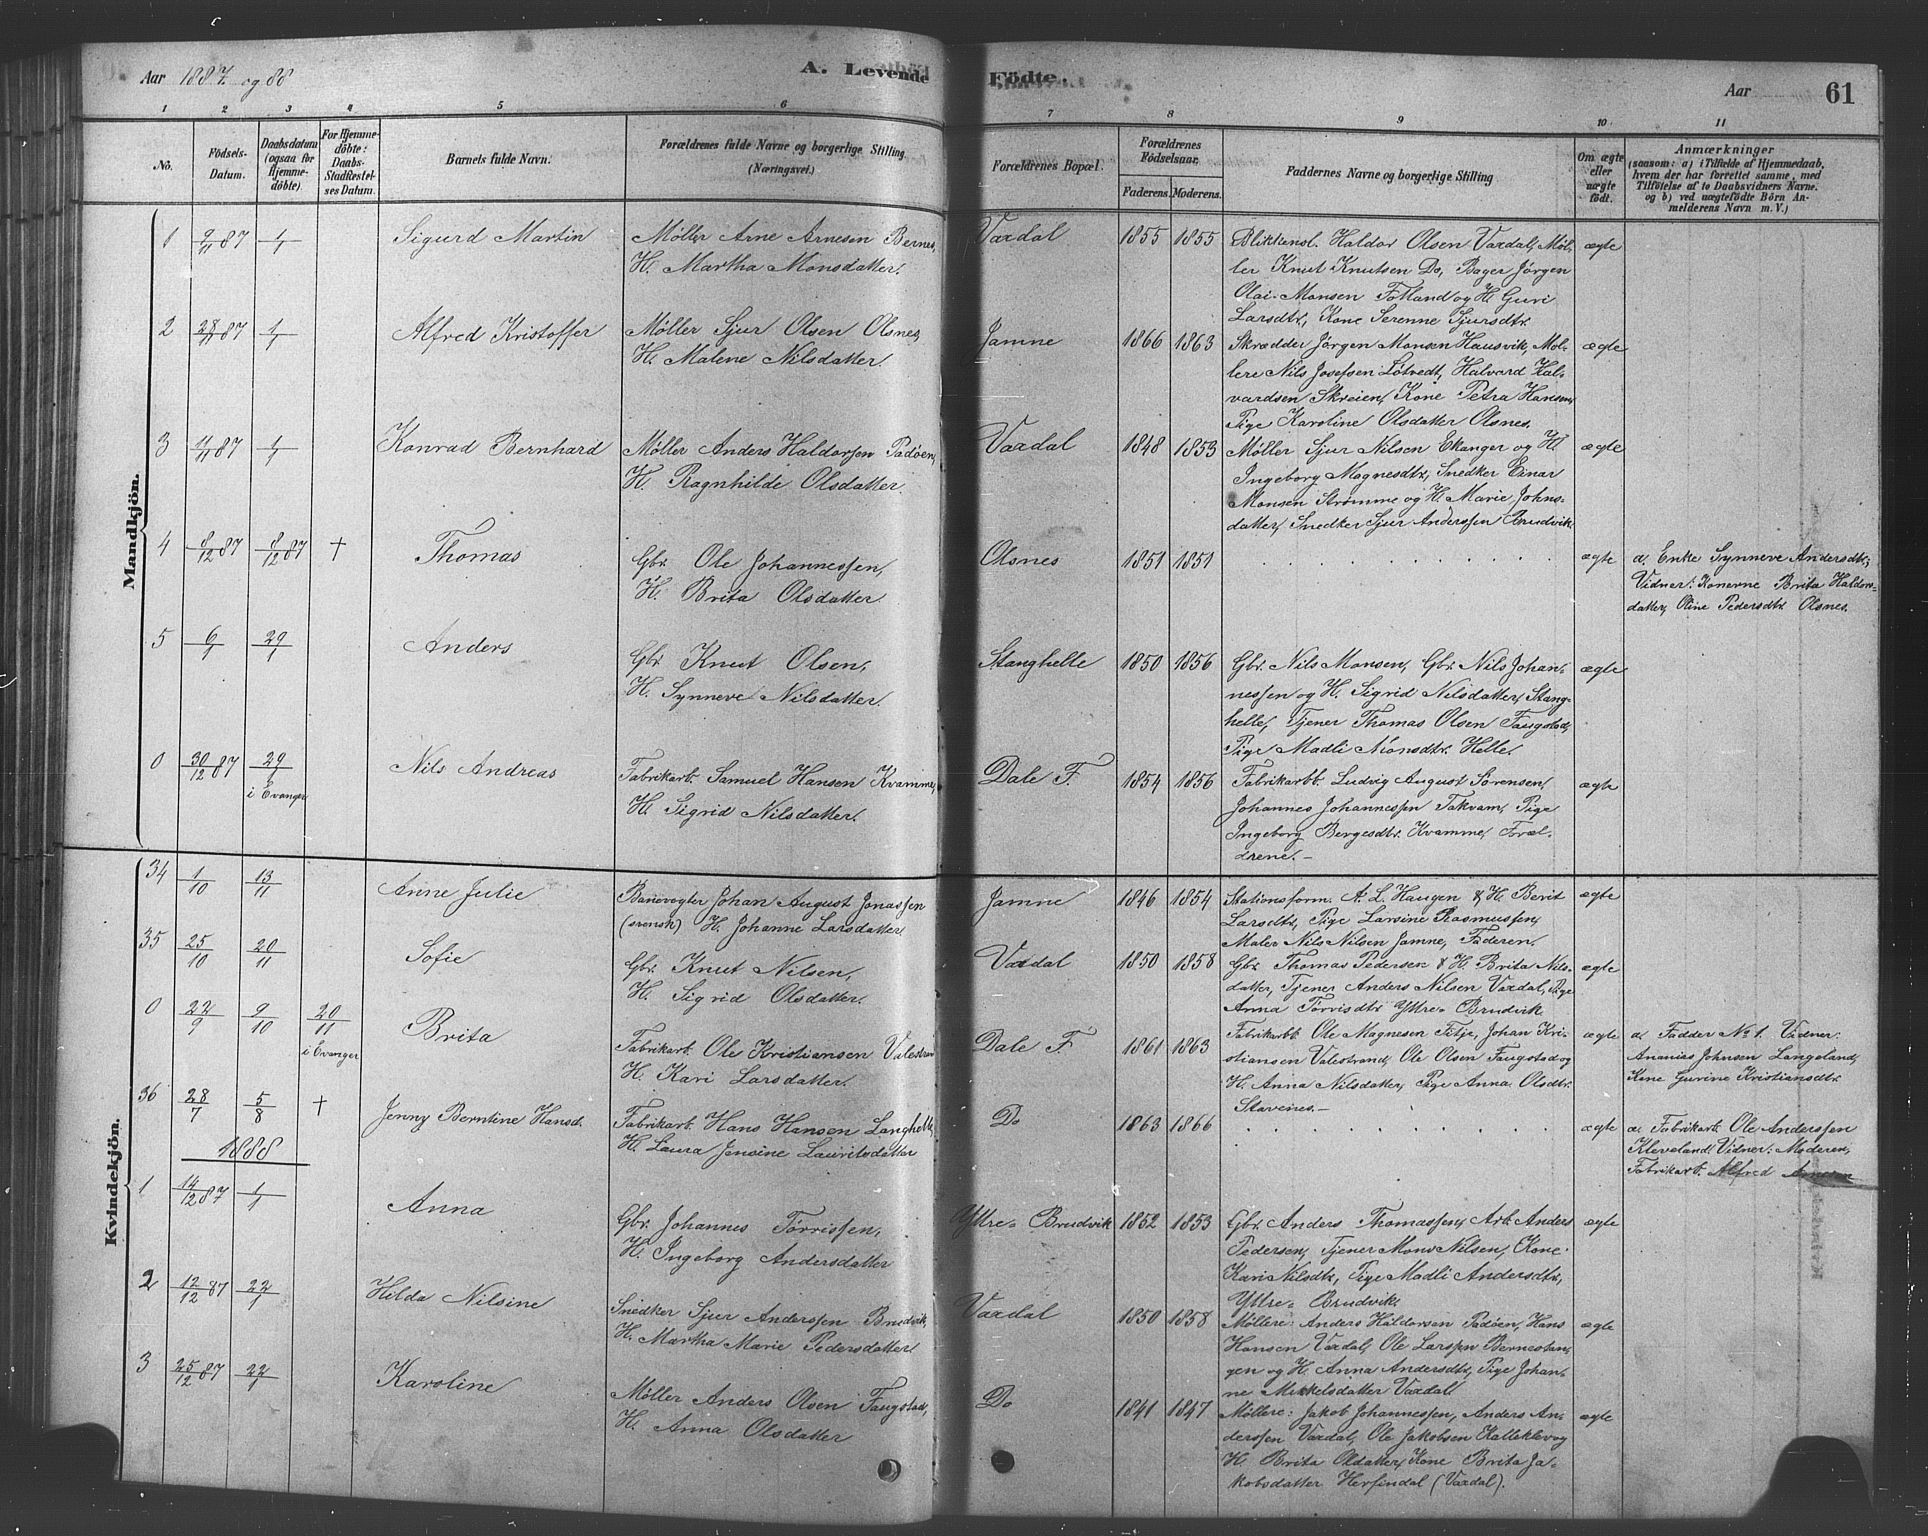 Aar 1887 og 88
A. Levende Födte.
Aar
61
1 2 3 4 5 6 7 8 9 10 11
No.
Födsels-Datum.
Daabsdatum (ogsaa for Hjemme-döbte).
For Hjemme-döbte: Daabs-Stadfestel-ses Datum.
Barnets fulde Navn.
Forældrenes fulde Navne og borgerlige Stilling (Næringsvei.)
Forældrenes Bopæl.
Forældrenes Födselsaar.
Faderens. Moderens.
Faddernes Navne og borgerlige Stilling
Om ægte eller uægte födt.
Anmærkninger
(saasom: a) i Tilfælde af Hjemmedaab,
hvem der har forrettet samme, med
Tilföielse af to Daabsvidners Navne.
og b) ved uægtefödte Börn An-
melderens Navn m. V.)
Mandkjön.
1 9/11 87 1/1 Sigurd Martin
Møller Arne Arnesen Bernes,
H. Martha Monsdatter.
Vaxdal 1855 1855
Blikkensl. Haldor Olsen Vaxdal, Møl-
ler Knut Knutsen Do, Bager Jørgen
Olai Monsen Fotland og H. Guri
Larsdtr, Kone Serenne Sjursdtr.
ægte
2 28/11 87 1/1 Alfred Kristoffer
Møller Sjur Olsen Olsnes,
H. Malene Nilsdatter.
Jamne 1866 1863
Skrædder Jörgen Monsen Hausvik, Møl-
lere Nils Josefsen Løtvedt, Halvard Hal-
vardsen Skreien, Kone Petra Hansen,
Pige Karoline Olsdatter Olsnes.
ægte
3 4/11 87 1/1 Konrad Bernhard
Møller Anders Haldorsen Padøen,
H. Ragnhilde Olsdatter.
Vaxdal 1848 1853
Møller Sjur Nilsen Ekanger og H.
Ingeborg Magnesdtr, Snedker Einar
Monsen Strømme og H. Marie Johns-
datter, Snedker Sjur Anderssen Brudvik.
ægte
4 8/12 87 8/12 87 † Thomas
Gbr. Ole Johannessen,
H. Brita Olsdatter.
Olsnes 1851 1851
ægte
a. Enke Synneve Andersdtr,
Vidner: Konerne Brita Haldors-
datter, Oline Pedersdtr Olsnes.
5 6/1 29/1 Anders
Gbr. Knut Olsen,
H. Synneve Nilsdatter.
Stanghelle 1850 1856
Gbr. Nils Monsen, Gbr. Nils Johan-
nessen og H. Sigrid Nilsdatter, Stang-
helle, Tjener Thomas Olsen Faugstad,
Pige Madli Monsdtr. Helle.
ægte
0 30/12 87 29/1 i Evanger Nils Andreas
Fabrikarb. Samuel Hansen Kvamme,
H. Sigrid Nilsdatter.
Dale F. 1854 1856
Fabrikarbb. Ludvig August Sörensen,
Johannes Johannessen Takvam, Pige
Ingeborg Bergesdtr. Kvamme, Foræl-
drene.
ægte
Kvindekjön.
34 1/10 13/11 Anne Julie
Banevogter Johan August Jonassen
(svensk) H. Johanne Larsdatter
Jamne 1846 1854
Stationsform. A. L. Haugen & H. Berit
Larsdtr, Pige Larsine Rasmussen,
Maler Nils Nilsen Jamne, Faderen.
ægte
35 25/10 20/11 Sofie
Gbr. Knut Nilsen,
H. Sigrid Olsdatter.
Vaxdal 1850 1858
Gbr. Thomas Pedersen & H. Brita Nils-
datter, Tjener Anders Nilsen Vaxdal, Pige
Anna Torrisdtr Yttre-Brudvik
ægte
0 22/9 9/10 20/11 i Evanger Brita
Fabrikarb. Ole Kristiansen Valestrand
H. Kari Larsdatter.
Dale F. 1861 1863
Fabrikarbb. Ole Magnesen Fitje, Johan Kri-
stiansen Valestrand, Ole Olsen Faugstad og
H. Anna Nilsdatter, Pige Anna Olsdtr.
Stavenes.
ægte
a. Fadder No 1. Vidner:
Ananias Johnsen Langeland,
Kone Gurine Kristiansdtr.
36 28/7 5/8 † Jenny Berntine Hansd.
Fabrikarb. Hans Hansen Langhelle,
H. Laura Jensine Lauritsdatter
Do 1863 1866
ægte
a. Fabrikarb. Ole Anderssen
Kleveland. Vidner: Moderen,
Fabrikarb. Alfred
1888
1 14/12 87 1/1 Anna
Gbr. Johannes Torrissen,
H. Ingeborg Andersdatter
Yttre-Brudvik 1852 1853
Gbr. Anders Thomassen, Arb. Anders
Pedersen, Tjener Mons Nilsen, Kone
Kari Nilsdtr, Pige Madli Andersdtr,
Yttre-Brudvik.
ægte
2 12/12 87 22/1 Hilda Nilsine
Snedker Sjur Anderssen Brudvik,
H. Martha Marie Pedersdatter.
Vaxdal 1850 1858
Møllere: Anders Haldorsen Padøen, Hans
Hansen Vaxdal, Ole Larssen Bernestan-
gen og H. Anna Andersdtr, Pige Johan-
ne Mikkelsdatter Vaxdal.
ægte
3 25/12 87 22/1 Karoline
Møller Anders Olsen Faugstad,
H. Anna Olsdatter
Do 1841 1847
Møllere: Jakob Johannessen, Anders An-
derssen Vaxdal, Ole Jakobsen Kalleklev og
H. Brita Oldatter, Kone Brita Ja-
kobsdatter Herfindal (Vaxdal).
ægte